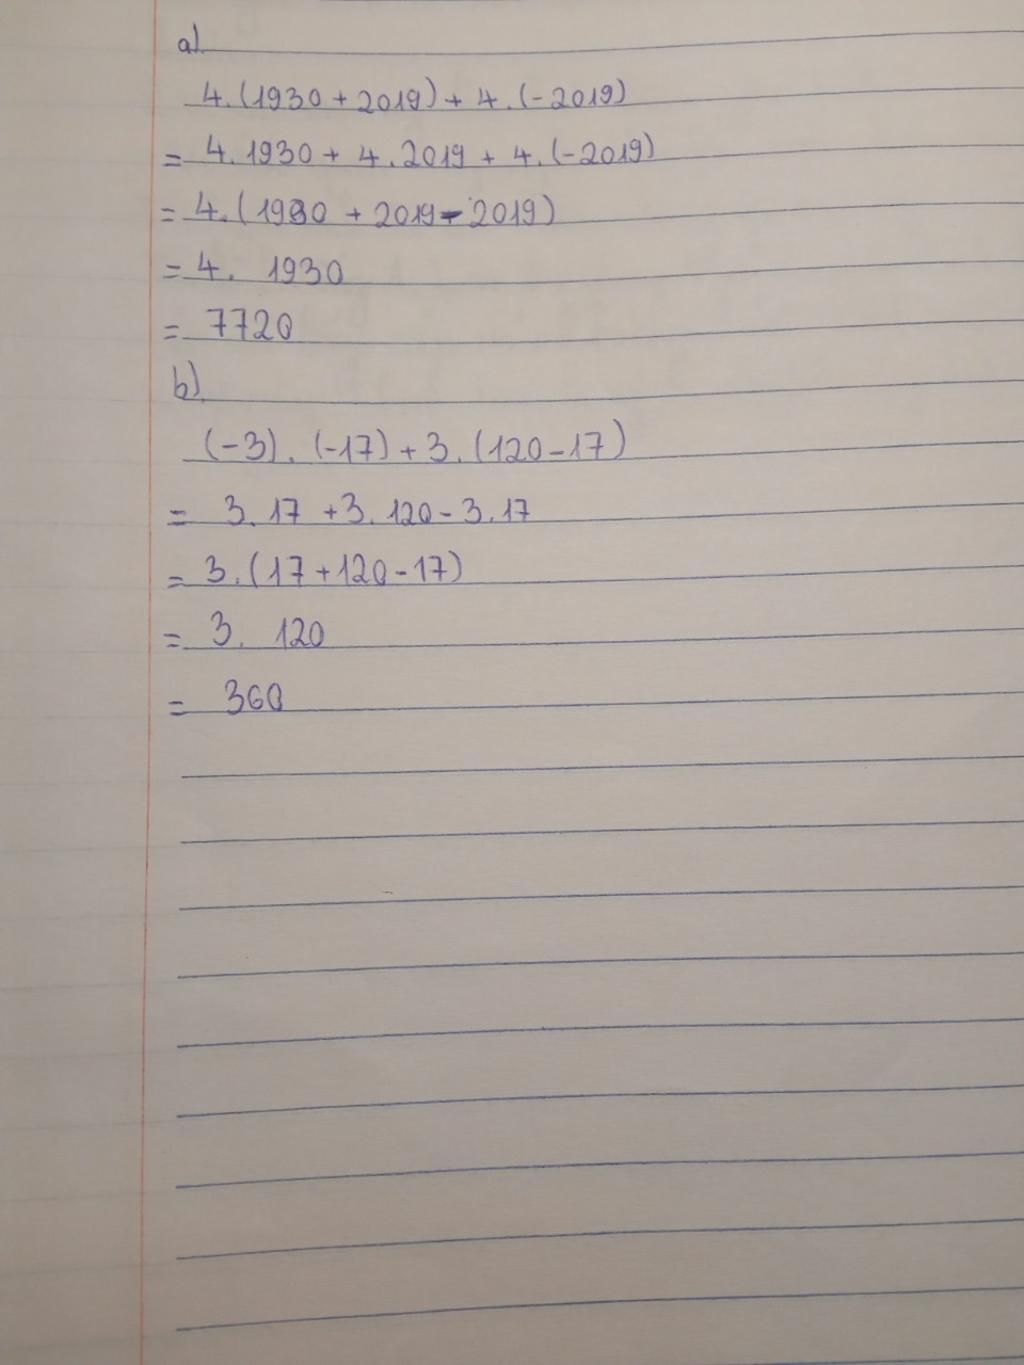 a)
4.(1930 + 2019) + 4.(-2019)
= 4.1930 + 4.2019 + 4.(-2019)
= 4.(1930 + 2019 - 2019)
= 4. 1930
= 7720
b)
(-3).(-17) + 3.(120 - 17)
= 3.17 + 3.120 - 3.17
= 3.(17 + 120 - 17)
= 3. 120
= 360